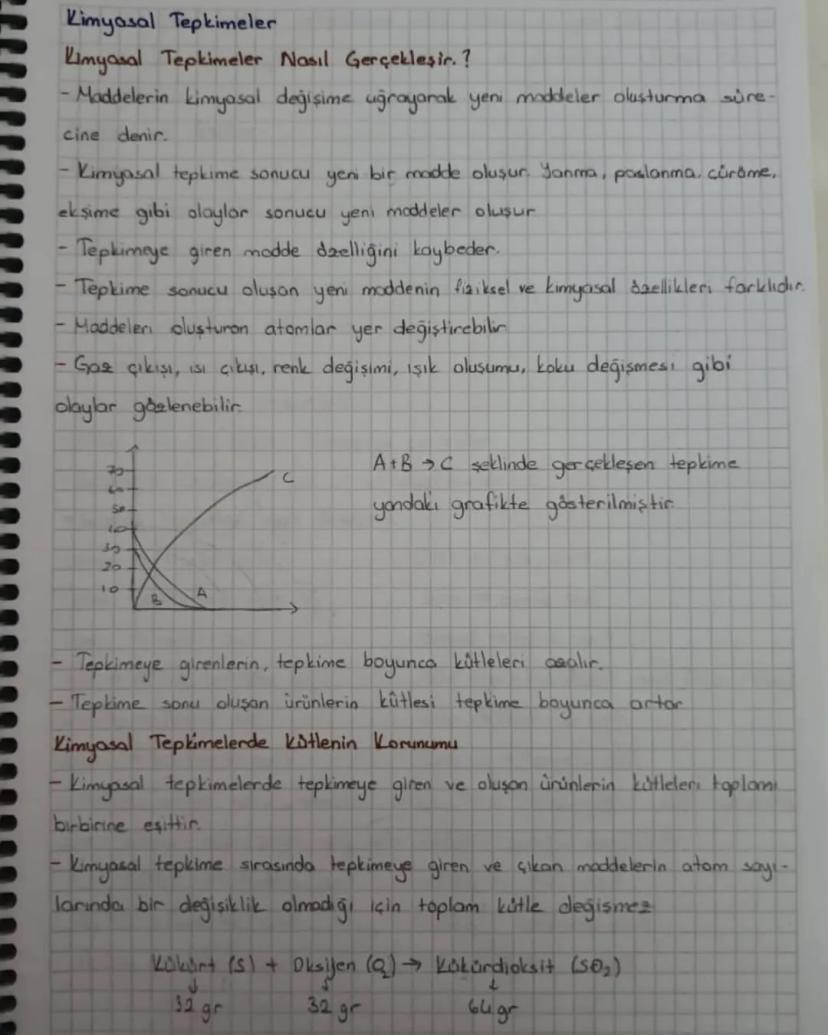 Kimyasal Tepkimeler
Kimyasal Tepkimeler Nasıl Gerçekleşir.?
- Maddelerin kimyasal değişime uğrayarak yeni maddeler oluşturma süre-
cine denir.
- Kimyasal tepkime sonucu yeni bir madde oluşur. Yanma, paslanma, çürüme,
ekşime gibi olaylar sonucu yeni maddeler oluşur
- Tepkimeye giren madde özelliğini kaybeder.
- Tepkime sonucu oluşan yeni maddenin fiziksel ve kimyasal özellikleri farklıdır.
- Maddeleri oluşturan atomlar yer değiştirebilir
- Gaz çıkışı, ısı çıkışı, renk değişimi, ışık oluşumu, koku değişmesi gibi
olaylar gözlenebilir
70
60
50
40
30
20
10
C
B
A
A+B → C şeklinde gerçekleşen tepkime
yandaki grafikte gösterilmiştir
- Tepkimeye girenlerin, tepkime boyunca kütleleri azalır.
- Tepkime sonu oluşan ürünlerin kütlesi tepkime boyunca artar
Kimyasal Tepkimelerde Kütlenin Korunumu
- Kimyasal tepkimelerde tepkimeye giren ve oluşan ürünlerin kütleleri toplamı
birbirine eşittir.
- Kimyasal tepkime sırasında tepkimeye giren ve çıkan maddelerin atom sayı-
larında bir değişiklik olmadığı için toplam kütle değişmez
Kükürt (S) + Oksijen (O₂) → Kükürdioksit (SO₂)
↓ ↓ ↓
32 gr 32 gr 64 gr